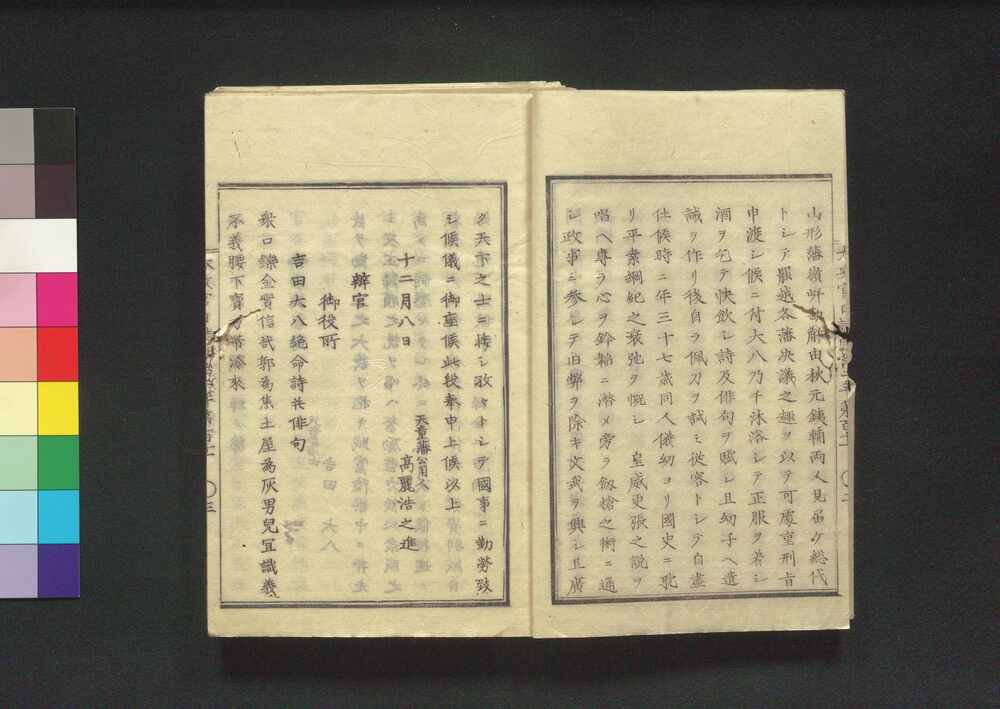 山形藩嶺岍勘解由秋元銕輔両人見届ケ総代
トシテ罷越各藩决議之趣ヲ以テ可處重刑旨
申渡シ候ニ付大八乃チ沐浴シテ正服ヲ着シ
酒ヲ乞テ快飲シ詩及俳句ヲ賦シ且幼子ヘ遺
誡ヲ作リ後自ラ佩刀ヲ試ミ従容トシテ自盡
仕候時ニ年三十七歳同人儀幼ヨリ國史ニ耽
リ平素綱紀之衰弛ヲ慨シ 皇威更張之説ヲ
唱ヘ専ラ心ヲ鈴韜ニ潜メ旁ラ劔槍之術ニ通
シ政事ニ参シテ旧弊ヲ除キ文武ヲ興シ且廣
ク天下之士ニ接シ孜々トシテ國事ニ勤勞致
シ候儀ニ御座候此段奉申上候以上
天童藩公用人
十二月八日 高麗浩之進
辨官
御役所
吉田大八絶命詩并俳句
衆口鑠金實信哉郭為焦土屋為灰男兒冝識義
不義腰下寳刀帯漆来